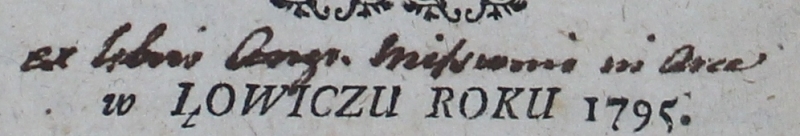 ex libris Congr. Missionis in Arce
w ŁOWICZU ROKU 1795.